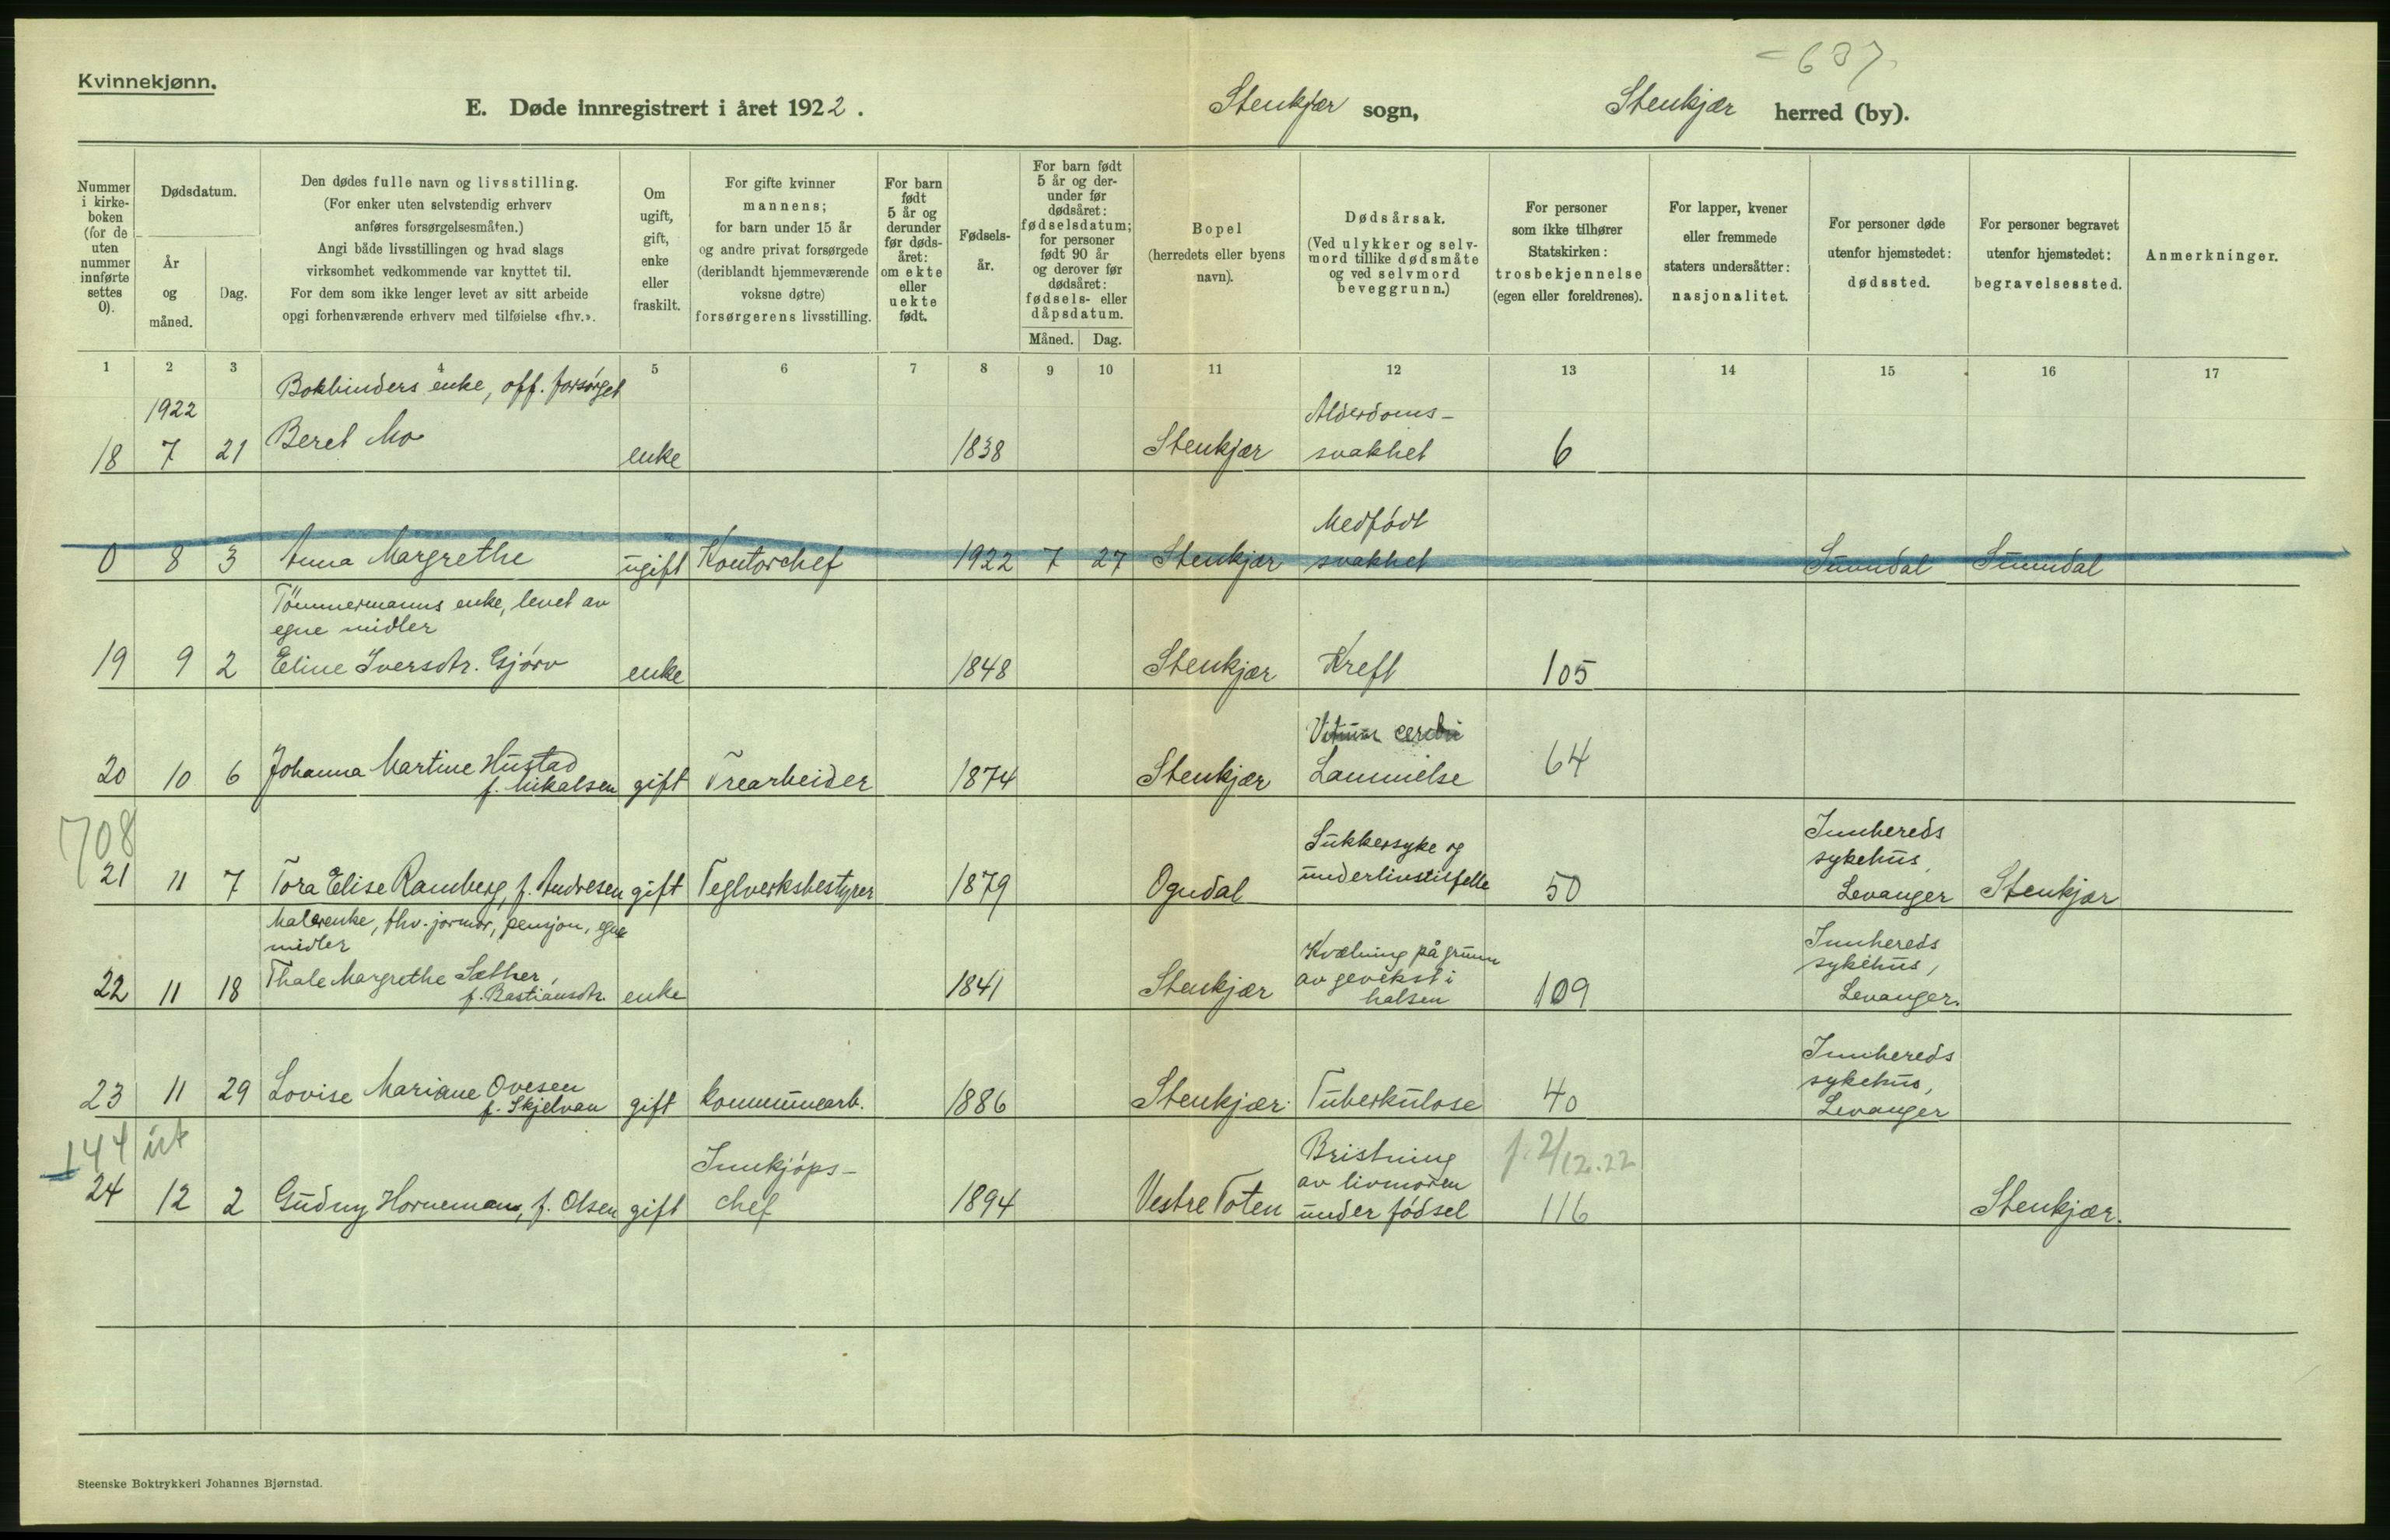 - 637.
Kvinnekjønn.
E. Døde innregistrert i året 1922. Stenkjær sogn, Stenkjær herred (by).
Nummer i kirke- boken (for de uten nummer innførte settes 0).
Dødsdatum.
År og måned.
Dag.
Den dødes fulle navn og livsstilling.
(For enker uten selvstendig erhverv
anføres forsørgelsesmåten.)
Angi både livsstillingen og hvad slags
virksomhet vedkommende var knyttet til.
For dem som ikke lenger levet av sitt arbeide
opgi forhenværende erhverv med tilføielse «fhv.».
Om ugift, gift, enke eller fraskilt.
For gifte kvinner
mannens;
for barn under 15 år
og andre privat forsørgede
(deriblandt hjemmeværende
voksne døtre)
forsørgerens livsstilling.
For barn født 5 år og derunder før døds- året: om ekte eller uekte født.
Fødsels- år.
For barn født 5 år og der- under før dødsåret: fødselsdatum; for personer født 90 år og derover før dødsåret: fødsels- eller dåpsdatum.
Måned. Dag.
Bopel
(herredets eller byens
navn).
Dødsårsak.
(Ved ulykker og selv-
mord tillike dødsmåte
og ved selvmord
beveggrunn.)
For personer
som ikke tilhører
Statskirken:
trosbekjennelse
(egen eller foreldrenes).
For lapper, kvener
eller fremmede
staters undersåtter:
nasjonalitet.
For personer døde
utenfor hjemstedet:
dødssted.
For personer begravet
utenfor hjemstedet:
begravelsessted.
Anmerkninger.
1 2 3 4 5 6 7 8 9 10 11 12 13 14 15 16 17
Bokbinders enke, off. forsørget
1922 Alderdoms-
18 7 21 Beret Mo enke 1838 Stenkjær svakhet 6
Medfødt
0 8 3 Anna Margrethe ugift Kontorchef 1922 7 27 Stenkjær svakhet Sunndal Sunndal
Tömmermanns enke, levet av
egne midler
19 9 2 Eline Iversdtr. Gjörv enke 1848 Stenkjær Kreft 105
Vitium cerebri
20 10 6 Johanna Martine Hustad
f. Mikalsen gift Trearbeider 1874 Stenkjær Lammelse 64
708
Sukkersyke og Innhereds
sykehus
21 11 7 Tora Elise Ramberg, f. Andresen gift Teglverksbestyrer 1879 Ogndal underlivstilfelle 50 Levanger Stenkjær
Malerenke, fhv. jormor, pensjon, egne
midler
Kvælning på grunn Innhereds
22 11 18 Thale Margrethe Sæther, av gevekst i sykehus,
f. Bastiansdtr. enke 1841 Stenkjær halsen 109 Levanger.
Innhereds
sykehus,
23 11 29 Lovise Mariane Ovesen
f. Skjelvan gift kommunearb. 1886 Stenkjær Tuberkulose 40 Levanger
144 ut
Innkjöps- Bristning f. 2/12.22
av livmoren
24 12 2 Gudny Hornemann, f. Olsen gift chef 1894 Vestre Toten under födsel 116 Stenkjær.
Steenske Boktrykkeri Johannes Bjørnstad.